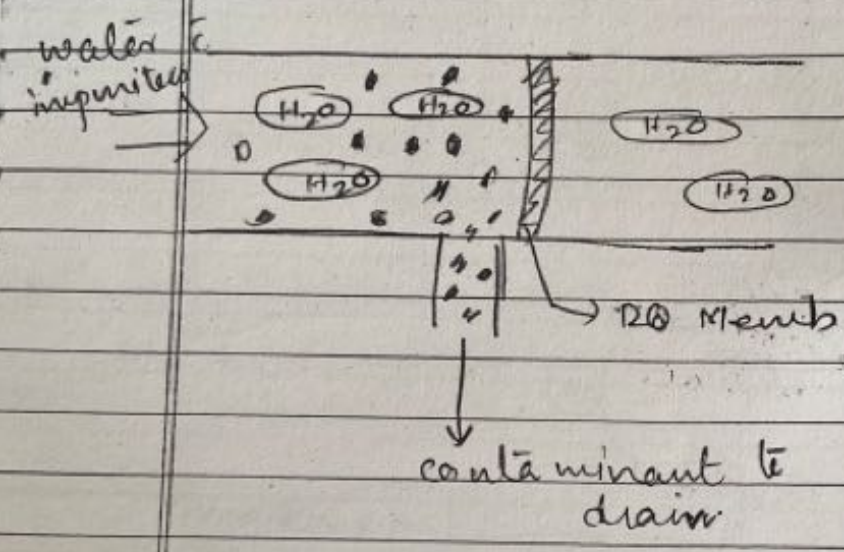 water c̄
impurities
H₂O
H₂O
H₂O
H₂O
H₂O
RO Memb
contaminant to
drain